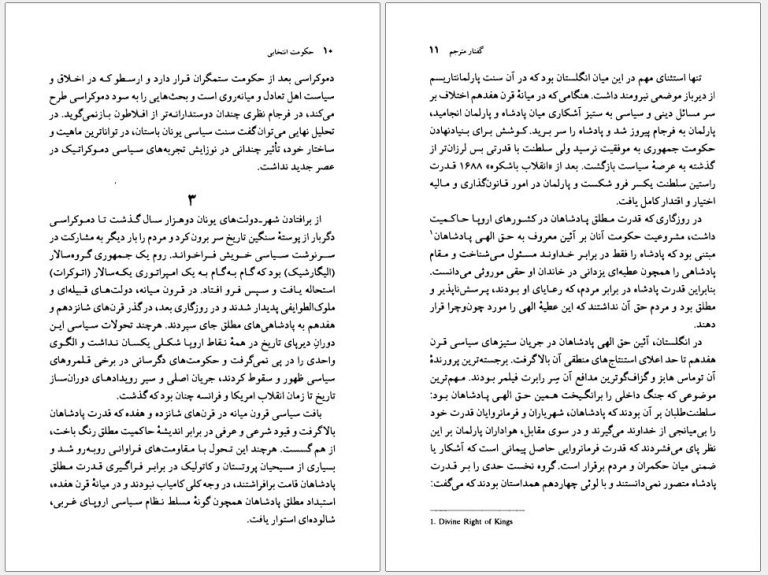 ۱۰ حکومت انتخابی
دموکراسی بعد از حکومت ستمگران قرار دارد و ارسطو که در اخلاق و
سیاست اهل تعادل و میانه‌روی است و بحث‌هایی را به سود دموکراسی طرح
می‌کند، در فرجام نظری چندان دوستدارانه‌تر از افلاطون بازنمی‌گوید. در
تحلیل نهایی می‌توان‌گفت سنت سیاسی یونان باستان، در تواناترین ماهیت و
ساختار خود، تأثیر چندانی در نوزایش تجربه‌های سیاسی دموکراتیک در
عصر جدید نداشت.
۳
از برافتادن شهر-دولت‌های یونان دوهزار سال گذشت تا دموکراسی
دگربار از پوستهٔ سنگین تاریخ سر برون کرد و مردم را بار دیگر به مشارکت در
سرنوشت سیاسی خویش فراخواند. روم یک جمهوری گروه‌سالار
(الیگارشیک) بود که گام به‌گام به یک امپراتوری یکه‌سالار (اتوکرات)
استحاله یافت و سپس فرو افتاد. در قرون میانه، دولت‌های قبیله‌ای و
ملوک‌الطوایفی پدیدار شدند و در روزگاری بعد، در گذر قرن‌های شانزدهم و
هفدهم به پادشاهی‌های مطلق جای سپردند. هرچند تحولات سیاسی این
دوران دیرپای تاریخ در همهٔ نقاط اروپا شکلی یکسان نداشت و الگوی
واحدی را در پی نمی‌گرفت و حکومت‌های دگرسانی در برخی قلمروهای
سیاسی ظهور و سقوط کردند، جریان اصلی و سیر رویدادهای دوران‌ساز
تاریخ تا زمان انقلاب امریکا و فرانسه چنان بود که گذشت.
بافت سیاسی قرون میانه در قرن‌های شانزده و هفده که قدرت پادشاهان
بالاگرفت و قیود شرعی و عرفی در برابر اندیشهٔ حاکمیت مطلق رنگ باخت،
از هم گسست. هرچند این تحول با مقاومت‌های فراوانی روبه‌رو شد و
بسیاری از مسیحیان پروتستان و کاتولیک در برابر فراگیری قدرت مطلق
پادشاهان قامت برافراشتند، در وجه کلی کامیاب نبودند و در میانهٔ قرن هفده،
استبداد مطلق پادشاهان همچون گونهٔ مسلط نظام سیاسی اروپای غربی،
شالوده‌ای استوار یافت.
گفتار مترجم ۱۱
تنها استثنای مهم در این میان انگلستان بود که در آن سنت پارلمانتاریسم
از دیرباز موضعی نیرومند داشت. هنگامی که در میانهٔ قرن هفدهم اختلاف بر
سر مسائل دینی و سیاسی به ستیز آشکاری میان پادشاه و پارلمان انجامید،
پارلمان به فرجام پیروز شد و پادشاه را سر برید. کوشش برای بنیادنهادن
حکومت جمهوری به موفقیت نرسید ولی سلطنت با قدرتی بس لرزان‌تر از
گذشته به عرصهٔ سیاست بازگشت. بعد از «انقلاب باشکوه» ۱۶۸۸ قدرت
راستین سلطنت یکسر فرو شکست و پارلمان در امور قانون‌گذاری و مالیه
اختیار و اقتدار کامل یافت.
در روزگاری که قدرت مطلق پادشاهان در کشورهای اروپا حاکمیت
داشت، مشروعیت حکومت آنان بر آئین معروف به حق الهی پادشاهان۱
مبتنی بود که پادشاه را فقط در برابر خداوند مسئول می‌شناخت و مقام
پادشاهی را همچون عطیه‌ای یزدانی در خاندان او حقی موروثی می‌دانست.
بنابراین قدرت پادشاه در برابر مردم، که رعایای او بودند، پرسش‌ناپذیر و
مطلق بود و مردم حق آن نداشتند که این عطیهٔ الهی را مورد چون‌وچرا قرار
دهند.
در انگلستان، آئین حق الهی پادشاهان در جریان ستیزهای سیاسی قرن
هفدهم تا حد اعلای استنتاج‌های منطقی آن بالاگرفت. برجسته‌ترین پرورندهٔ
آن توماس هابز و گزاف‌گوترین مدافع آن سِر رابرت فیلمر بودند. مهم‌ترین
موضوعی که جنگ داخلی را برانگیخت همین حق الهی پادشاهان بود:
سلطنت‌طلبان بر آن بودند که پادشاهان، شهریاران و فرمانروایان قدرت خود
را بی‌میانجی از خداوند می‌گیرند و در سوی مقابل، هواداران پارلمان بر این
نظر پای می‌فشردند که قدرت فرمانروایی حاصل پیمانی است که آشکار یا
ضمنی میان حکمران و مردم برقرار است. گروه نخست حدی را بر قدرت
پادشاه متصور نمی‌دانستند و با لوئی چهاردهم همداستان بودند که می‌گفت:
1. Divine Right of Kings